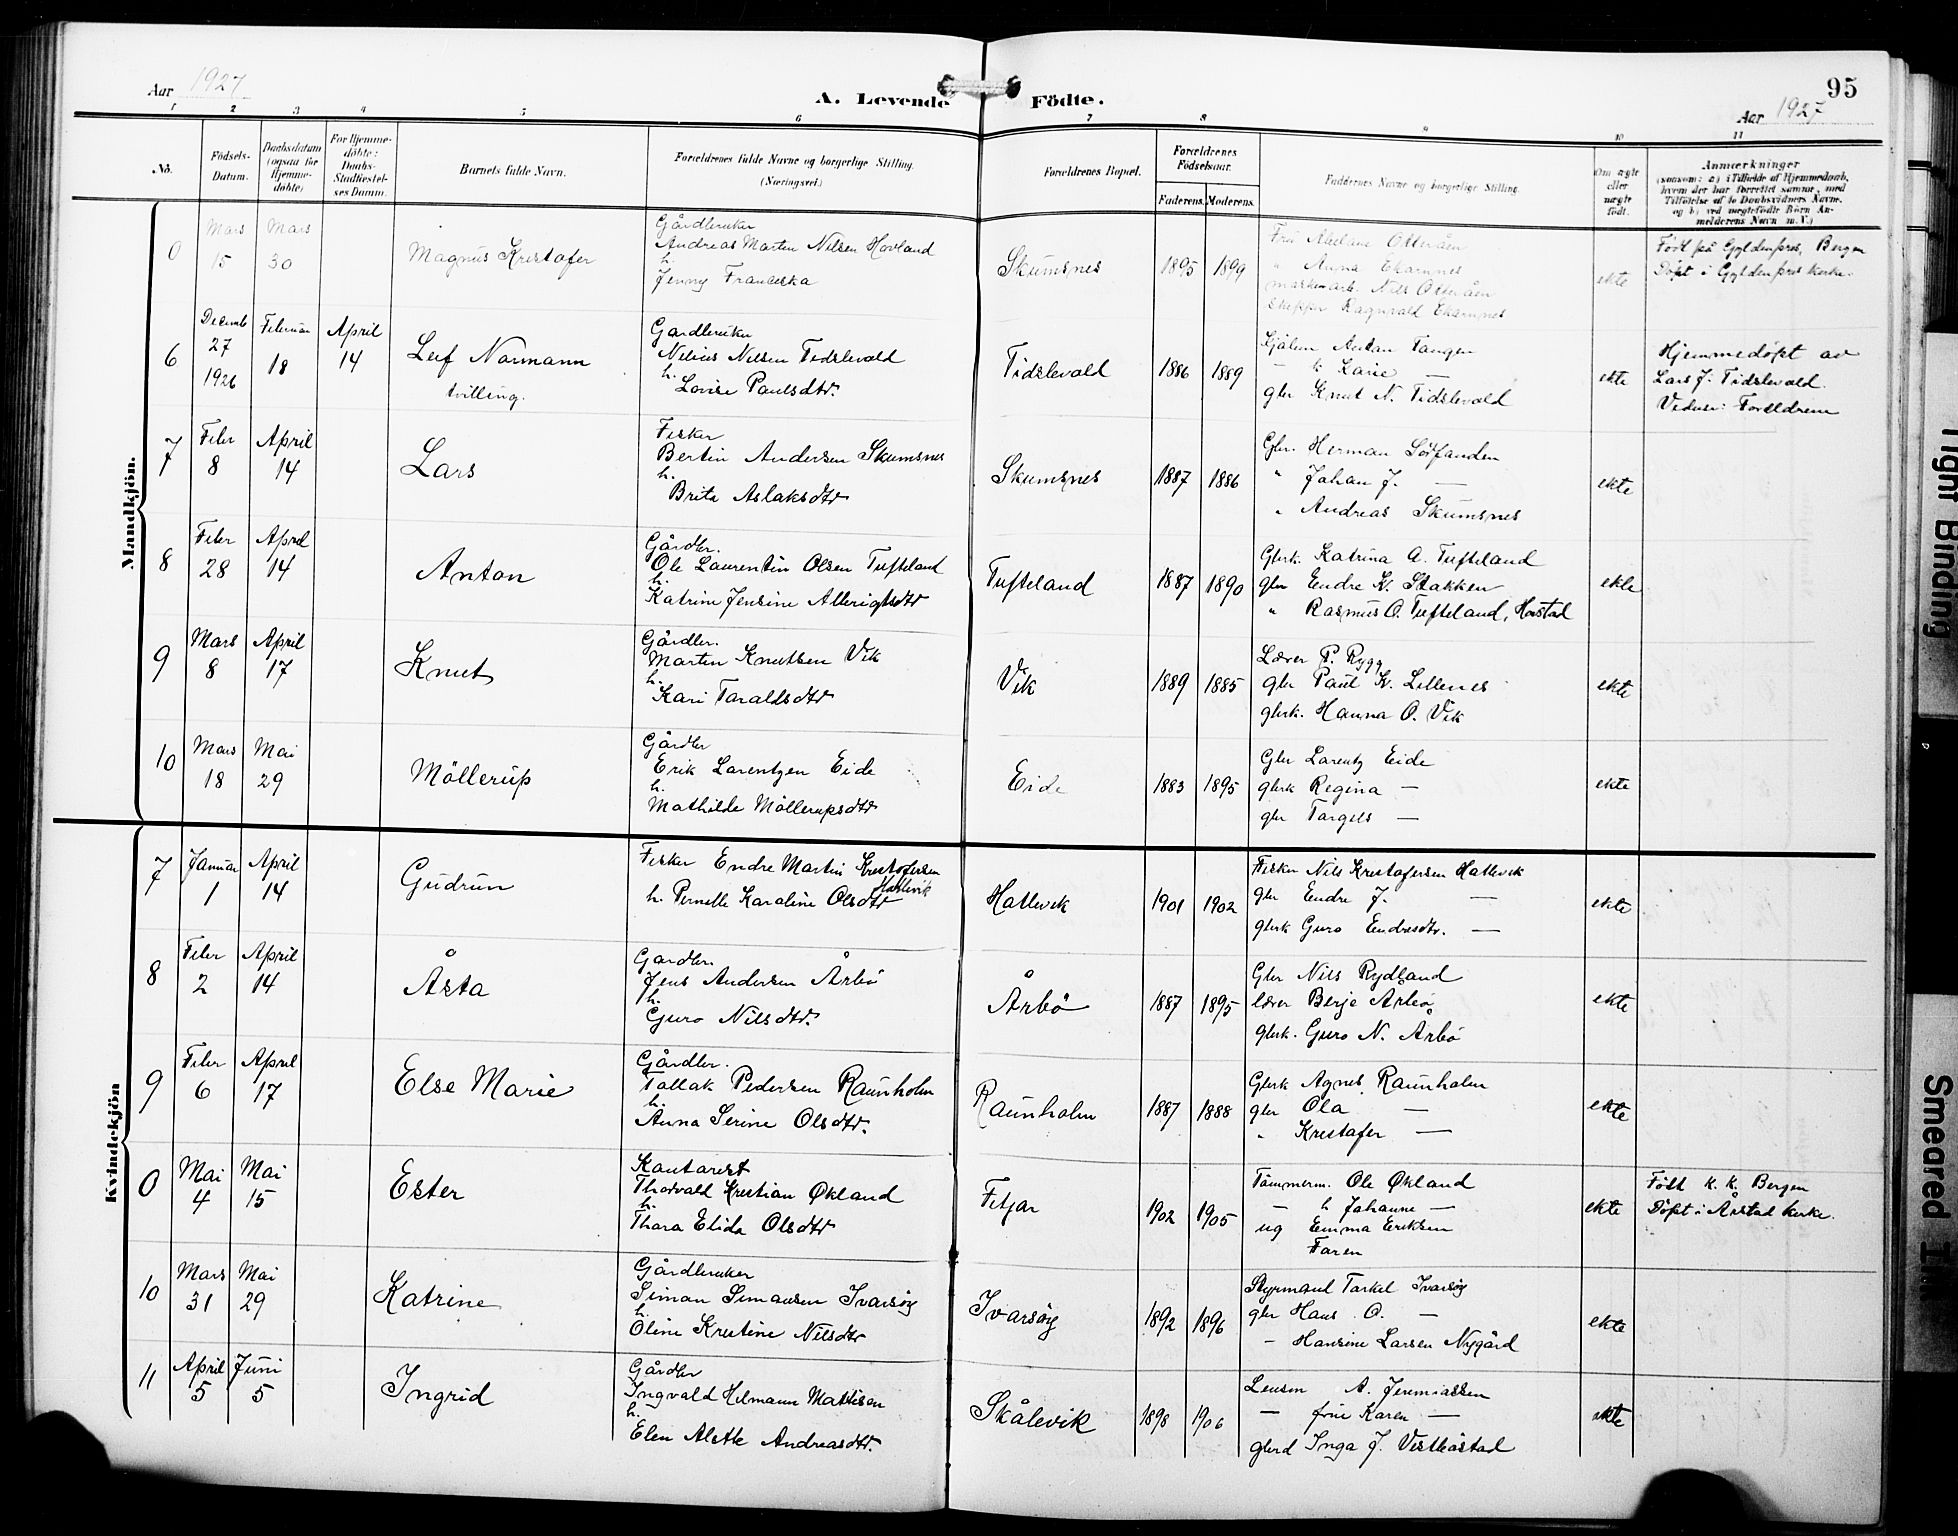 Aar 1927
A. Levende Födte.
95
Aar 1927
1 2 3 4 5 6 7 8 9 10 11
No.
Födsels-Datum.
Daabsdatum (ogsaa for Hjemme-döbte)
For Hjemme-döbte: Daabs-Stadfæstel-ses Datum.
Barnets fulde Navn.
Forældrenes fulde Navne og borgerlige Stilling. (Næringsvei.)
Forældrenes Bopæl.
Forældrenes Födselsaar.
Faderens. Moderens.
Faddernes Navne og borgerlige Stilling.
Om ægte eller uægte födt.
Anmærkninger
(saasom: a) i Tilfælde af Hjemmedaab, hvem der har forrettet samme, med Tilföielse af to Daabsvidners Navne, og b) ved uægtefödte Börn An-melderens Navn m. V.)
Mandkjön.
0 Mars 15 Mars 30 Magnus Kristofer
Gårdbruker
Andreas Martin Nilsen Hovland
h.
Jenny Franciska
Skumsnes 1895 1899
Fru Otteråen
" Anna Ekornnes
Nils Otteråen
Skipper Ragnvald Ekornnes
ekte
Född på Gyldenpris, Bergen
Döpt i Gyldenpris kirke.
6 Decemb 27 1926 Februar 18 April 14
Leif Normann
tvilling.
Gardbruker
Nilius Nilsen Tidslevold
h.
Lovise Paulsdtr.
Tidslevold 1886 1889
Anton Tangen
— h. Karie —
gbr Knut N. Tidslevold
ekte
Hjemmedöpt av
Lars J. Tidslevold.
Vidner: Foreldrene
7 Febr 8 April 14 Lars
Fisker
Bertin Andersen Skumsnes
h.
Brita Aslaksdtr
Skumsnes 1887 1886
Gbr. Herman Sörfonden
" Johan J. —
" Andreas Skumsnes
ekte
8 Febr 28 April 14 Anton
Gårdbr.
Ole Laurentin Olsen Tufteland
h.
Katrine Jensine Albrigtsdtr
Tufteland 1887 1890
Gbrk. Katrina A. Tufteland
gbr Endre K. Stakken
" Rasmus O. Tufteland, Horstad
ekte
9 Mars 8 April 17 Knut
Gårdbr.
Martin Knutsen Vik
h.
Kari Taraldsdtr
Vik 1889 1885
Lærer P. Rygg
gbr Paul K. Lillenes
gbrk. Hanna O. Vik
ekte
10 Mars 18 Mai 29 Möllerup
Gårdbr
Erik Larentzen Eide
h.
Mathilde Möllerupsdtr
Eide 1883 1895
Gbr Larentz Eide
gbrk Regina —
gbr Torgels —
ekte
Kvindekjön
7 Januar 1 April 14 Gudrun
Fisker Endre Martin Kristofersen
Hatlevik
h. Pernille Karoline Olsdtr
Hatlevik 1901 1902
Fisker Nils Kristofersen Hatlevik
gbr Endre J. —
gbrk Guro Endresdtr. —
ekte
8 Febr 2 April 14 Åsta
Gardbr.
Jens Andersen Årbö
h.
Guro Nilsdtr.
Årbö 1887 1895
Gbr Nils Rydland
lærer Berje Årbö
gbrk. Guro N. Årbö
ekte
9 Febr 6 April 17 Else Marie
Gårdbr.
Tollak Pedersen Raunholm
h.
Anna Serine Olsdtr.
Raunholm 1887 1888
Gbrk Agnes Raunholm
gbr Ola —
" Kristofer —
ekte
0 Mai 4 Mai 15 Ester
Kontorist
Thorvald Kristian Økland
h.
Thora Elida Olsdtr
Fitjar 1902 1905
Tömmerm. Ole Økland
— h Johanne —
ug Emma Eriksen
Faren
ekte
Född K. K. Bergen
Döpt i Årstad kirke.
10 Mars 31 Mai 29 Katrine
Gårdbruker
Simon Simonsen Ivarsöy
h.
Oline Kristine Nilsdtr
Ivarsöy 1892 1896
Styrmand Torkel Ivarsöy
gbr Hans O. —
— Hansine Larsen Nygård
ekte
11 April 5 Juni 5 Ingrid
Gårdbr
Ingvald Hilmann Mathisen
h.
Elen Alette Andreasdtr.
Skålevik 1898 1906
Lensm A. Jeremiassen
— frue Karen —
gbrd Inga J. Vestböstad
ekte
Tight Binding
Smeared Ink